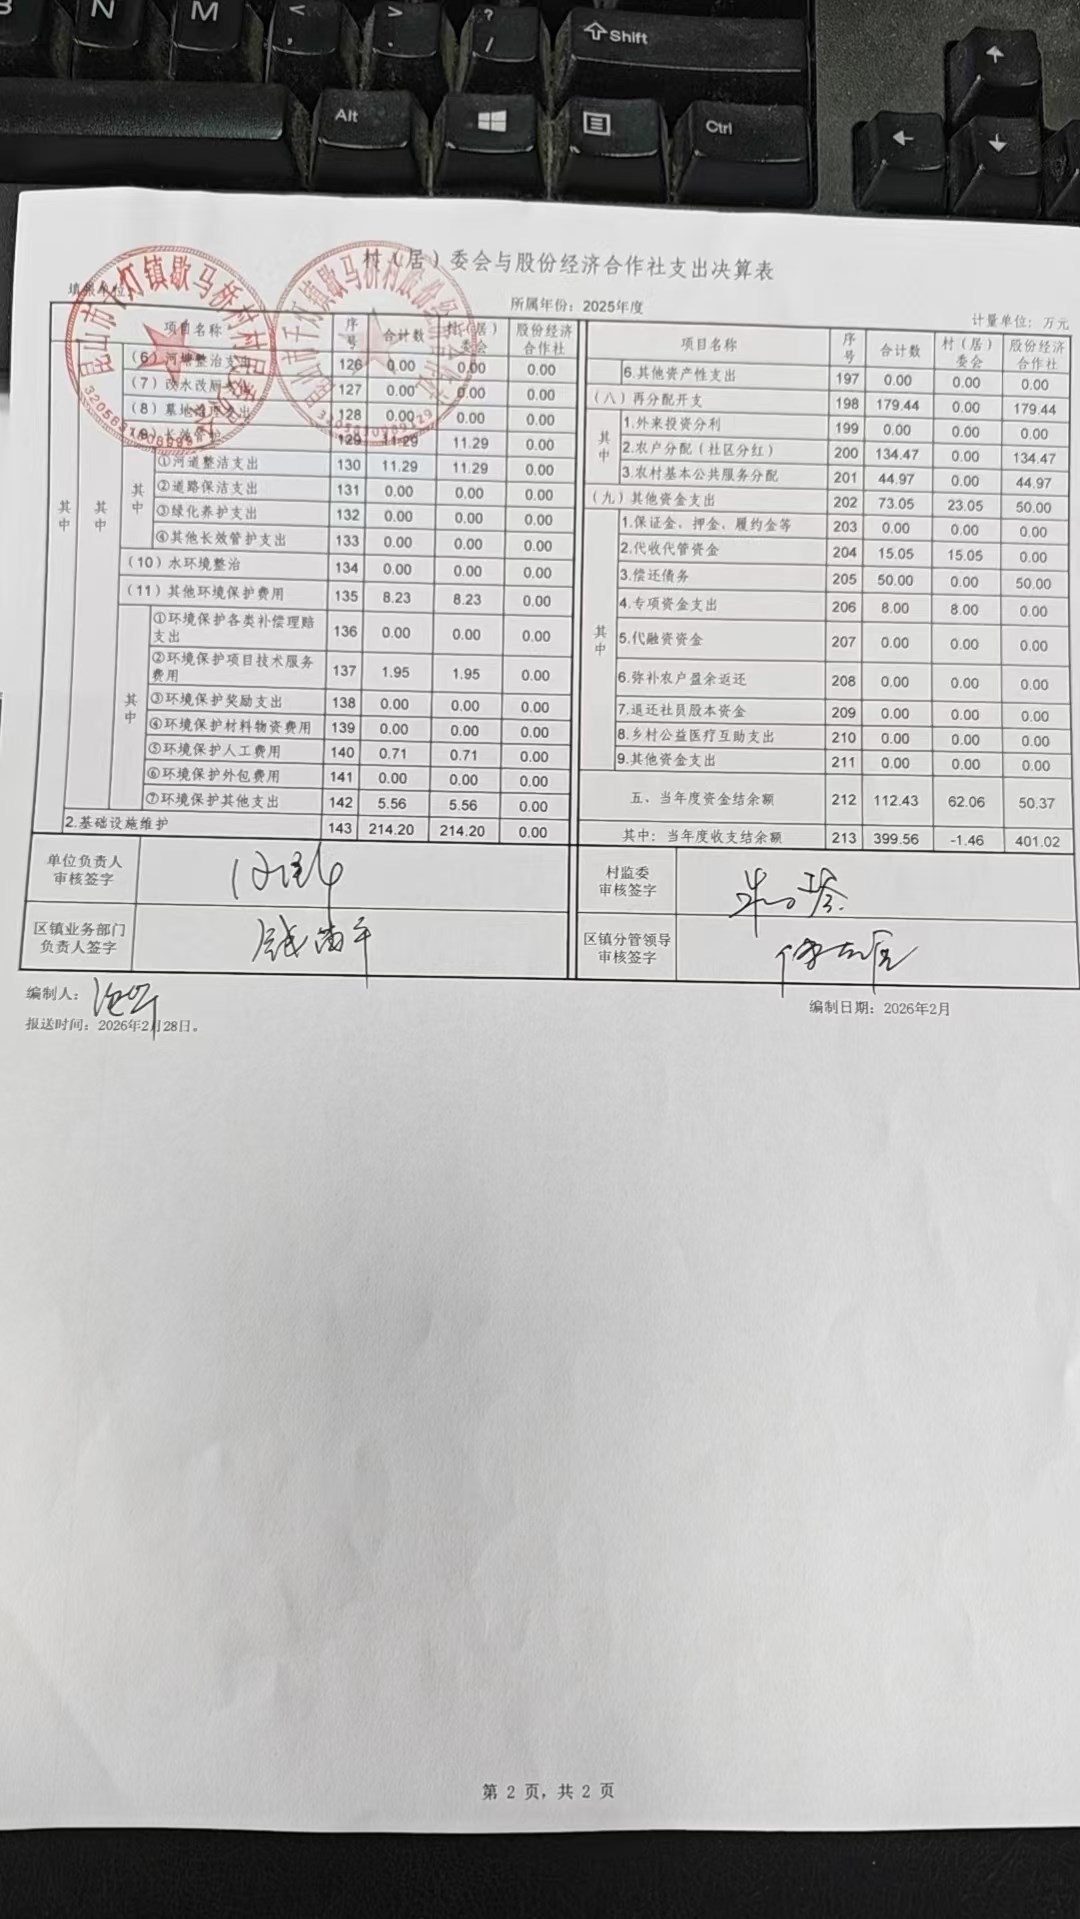 B
N
M
<
,
>
.
?
/
Shift
Alt
Ctrl
村（居）委会与股份经济合作社支出决算表
填报单位
所属年份：2025年度
计量单位：万元
昆山市千灯镇歇马桥村村民委员会
昆山市千灯镇歇马桥村股份经济合作社
项目名称 序号 合计数 村（居）委会 股份经济合作社
其中 其中
（6）河塘整治支出 126 0.00 0.00 0.00
（7）改水改厕支出 127 0.00 0.00 0.00
（8）墓地 128 0.00 0.00 0.00
（9）长效管护 129 11.29 11.29 0.00
其中
①河道整洁支出 130 11.29 11.29 0.00
②道路保洁支出 131 0.00 0.00 0.00
③绿化养护支出 132 0.00 0.00 0.00
④其他长效管护支出 133 0.00 0.00 0.00
（10）水环境整治 134 0.00 0.00 0.00
（11）其他环境保护费用 135 8.23 8.23 0.00
其中
①环境保护各类补偿理赔支出 136 0.00 0.00 0.00
②环境保护项目技术服务费用 137 1.95 1.95 0.00
③环境保护奖励支出 138 0.00 0.00 0.00
④环境保护材料物资费用 139 0.00 0.00 0.00
⑤环境保护人工费用 140 0.71 0.71 0.00
⑥环境保护外包费用 141 0.00 0.00 0.00
⑦环境保护其他支出 142 5.56 5.56 0.00
2.基础设施维护 143 214.20 214.20 0.00
项目名称 序号 合计数 村（居）委会 股份经济合作社
6.其他资产性支出 197 0.00 0.00 0.00
（八）再分配开支 198 179.44 0.00 179.44
其中
1.外来投资分利 199 0.00 0.00 0.00
2.农户分配（社区分红） 200 134.47 0.00 134.47
3.农村基本公共服务分配 201 44.97 0.00 44.97
（九）其他资金支出 202 73.05 23.05 50.00
其中
1.保证金、押金、履约金等 203 0.00 0.00 0.00
2.代收代管资金 204 15.05 15.05 0.00
3.偿还债务 205 50.00 0.00 50.00
4.专项资金支出 206 8.00 8.00 0.00
5.代融资资金 207 0.00 0.00 0.00
6.弥补农户盈余返还 208 0.00 0.00 0.00
7.退还社员股本资金 209 0.00 0.00 0.00
8.乡村公益医疗互助支出 210 0.00 0.00 0.00
9.其他资金支出 211 0.00 0.00 0.00
五、当年度资金结余额 212 112.43 62.06 50.37
其中：当年度收支结余额 213 399.56 -1.46 401.02
单位负责人
审核签字
村监委
审核签字
区镇业务部门
负责人签字
区镇分管领导
审核签字
编制人：
编制日期：2026年2月
报送时间：2026年2月28日。
第 2 页，共 2 页